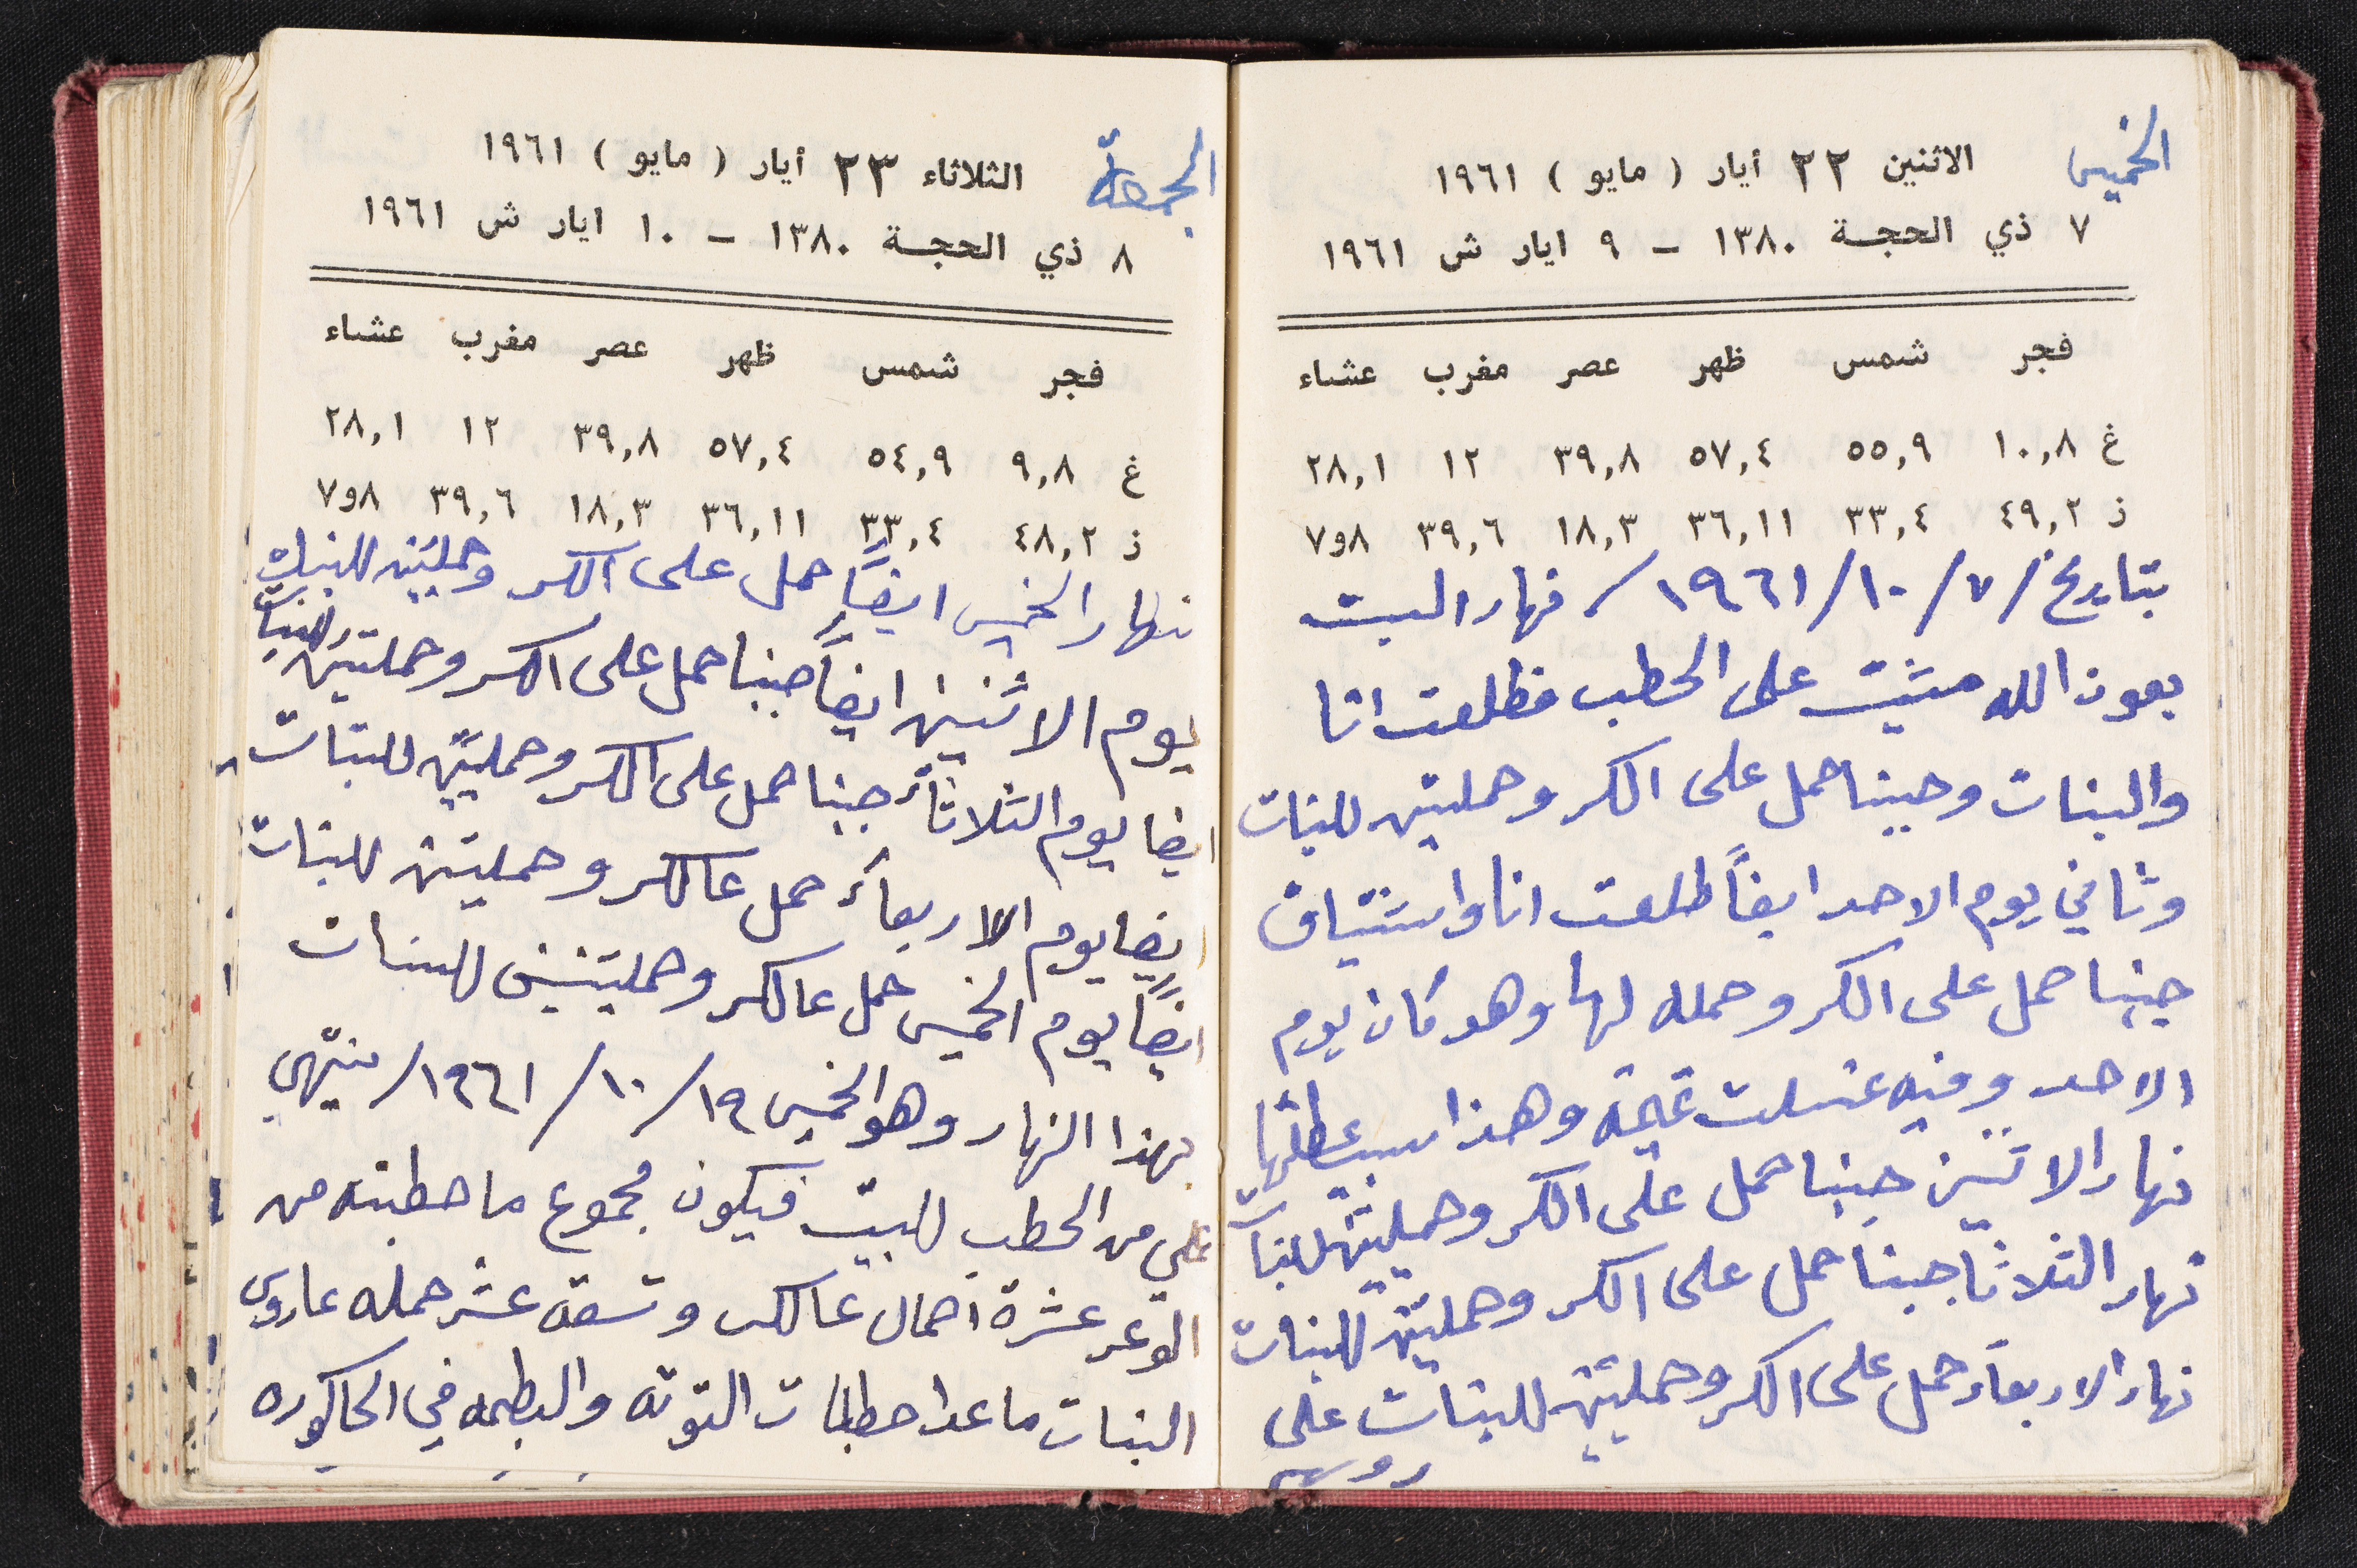 الخميس
الاثنين ٢٢ أيار ( مايو ) ١٩٦١
٧ ذي الحجة ١٣٨٠ – ٩ ايار ش ١٩٦١
فجر شمس ظهر عصر مغرب عشاء
غ ١٠,٨ ٥٥,٩ ٥٧,٤ ٣٩,٨ ١٢ ٢٨,١
ز ٤٩,٢ ٣٣,٤ ٣٦,١١ ١٨,٣ ٣٩,٦ ٨و٧
بتاريخ / ٧ / ١٠ / ١٩٦١ / نهار السبت
بعون الله مشيت على الحطب فطلعت انا
والبنات وجبنا حمل على الكر وحملتين للبنات
وثاني يوم الاحد ايضاً طلعت انا واشتياق
جبنا حمل على الكر وحمله لها وهو كان يوم
الاحد وفيه غسلت نجمة وهذا سبب عطلتها
نهار الاثنين جبنا حمل على الكر وحملتين للبنات
نهار الثلاثا جبنا حمل على الكر وحملتين للبنات
نهار الاربعاء حمل على الكر وحملتين للبنات على
روسهم
الجمعة
الثلاثاء ٢٣ أيار ( مايو ) ١٩٦١
٨ ذي الحجة ١٣٨٠ – ١٠ ايار ش ١٩٦١
فجر شمس ظهر عصر مغرب عشاء
غ ٩,٨ ٥٤,٩ ٥٧,٤ ٣٩,٨ ١٢ ٢٨,١
ز ٤٨,٢ ٣٣,٤ ٣٦,١١ ١٨,٣ ٣٩,٦ ٨و٧
نهار الخميس ايضاً حمل على الكر وحملتين للبنات
يوم الاثنين ايضاً جبنا حمل على الكر وحملتين للبنات
ايضا يوم الثلاثاء جبنا حمل على الكر وحملتين للبنات
ايضا يوم الاربعاء حمل عالكر وحملتين للبنات
ايضاً يوم الخميس حمل عالكر وحملتين للبنات
بهذا النهار وهو الخميس ١٩ / ١٠ / ١٩٦١ / ينتهي
من الحطب للبيت فيكون مجموع ما حطبته من
الوعر عشرة احمال عالكر وتسعة عشر حمله عاروس
البنات ما عدا حطبات التوته والبطمه في الحاكوره